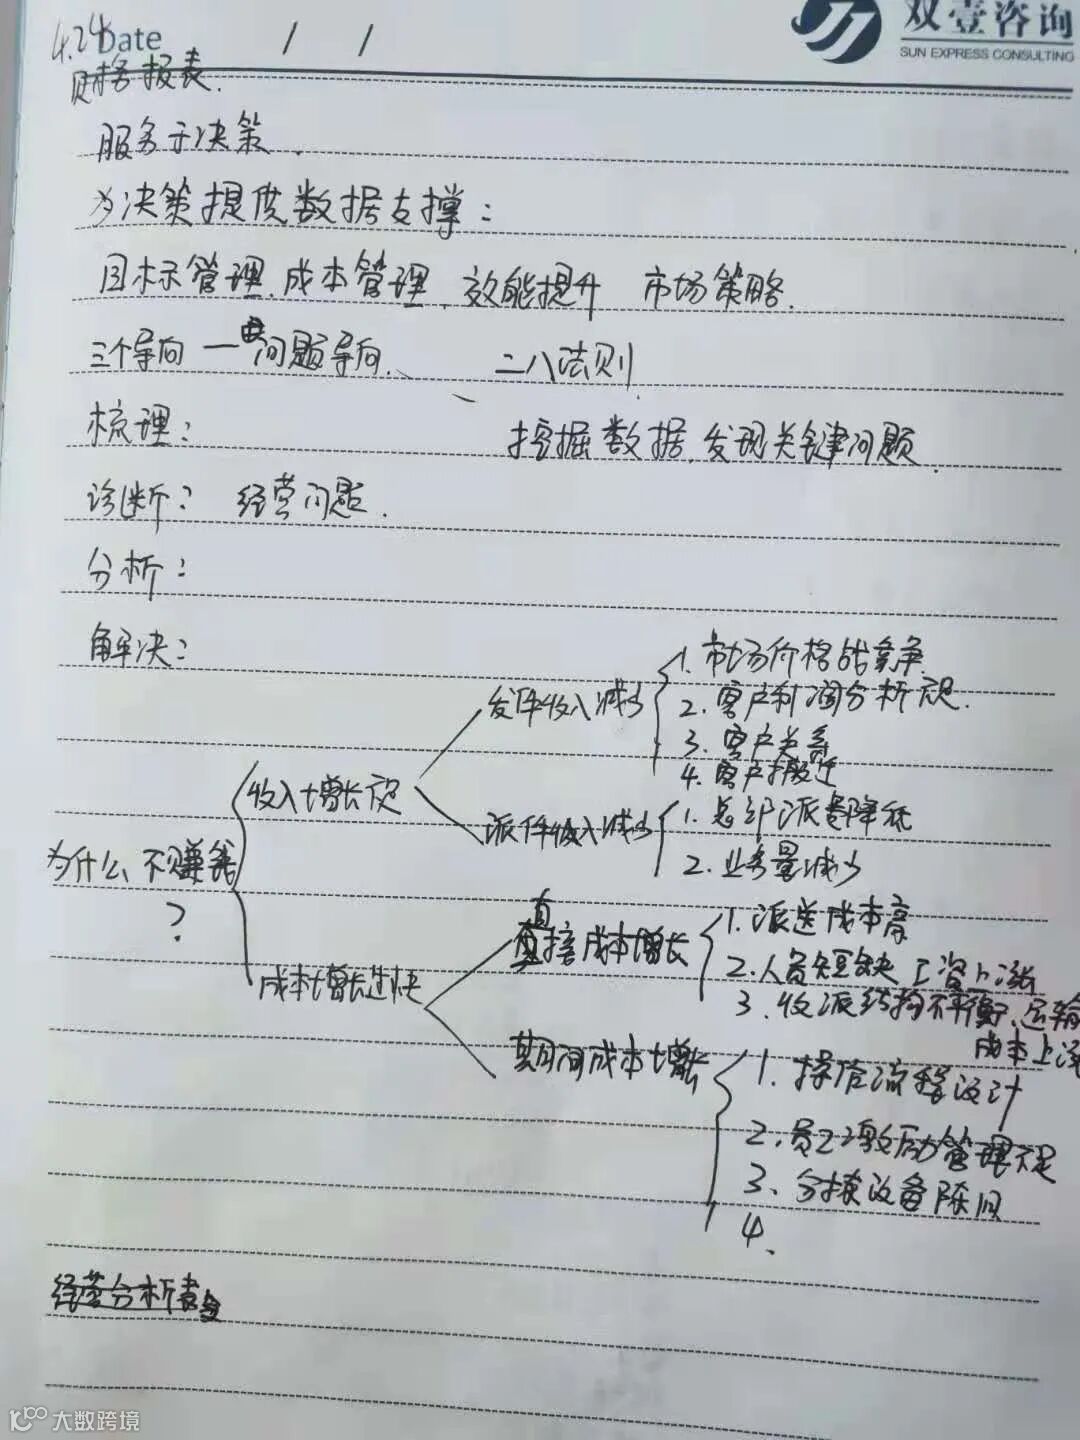 4.24 Date / /
双壹咨询
SUN EXPRESS CONSULTING
财务报表.
服务于决策.
为决策提供数据支撑:
目标管理、成本管理、效能提升 市场策略.
三个导向 一 问题导向. 二八法则.
梳理: 挖掘数据,发现关键问题.
诊断: 经营问题.
分析:
解决:
为什么不赚钱?
收入增长慢
发件收入减少
1. 市场价格战竞争.
2. 客户利润分析
3. 客户关系
4. 客户搬迁
派件收入减少
1. 总部派费降低
2. 业务量减少
成本增长过快
直接成本增长
1. 派送成本高
2. 人员短缺 工资上涨
3. 收派结构不平衡、运输成本上涨
期间成本增长
1. 操作流程设计
2. 员工激励管理不足
3、分拣设备陈旧
4、
经营分析表
大数跨境